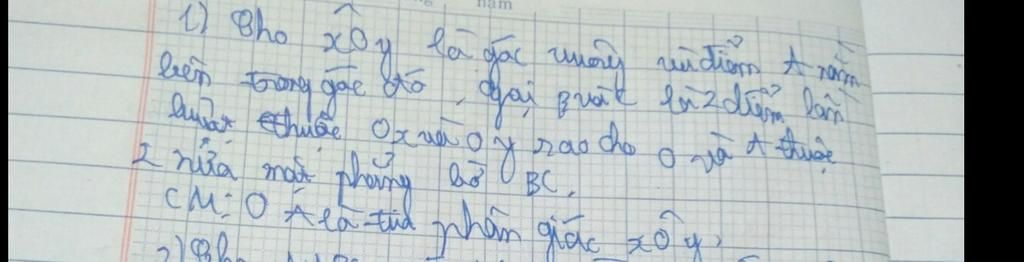 1) Cho xÔy là góc vuông và điểm A nằm
bên trong góc đó, Gọi B và C là 2 điểm lần
lượt thuộc Ox và Oy sao cho O và A thuộc
2 nửa mặt phẳng bờ BC.
CM: OA là tia phân giác xÔy.
2) Ch